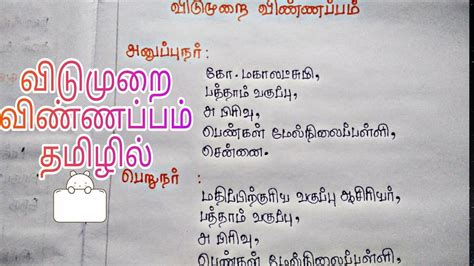 விடுமுறை விண்ணப்பம்
அனுப்புநர் :
கோ. மகாலட்சுமி,
பத்தாம் வகுப்பு,
அ பிரிவு,
பெண்கள் மேல்நிலைப்பள்ளி,
சென்னை.
பெறுநர் :
மதிப்பிற்குரிய வகுப்பு ஆசிரியர்,
பத்தாம் வகுப்பு,
அ பிரிவு,
பெண்கள் மேல்நிலைப்பள்ளி,
விடுமுறை
விண்ணப்பம்
தமிழில்